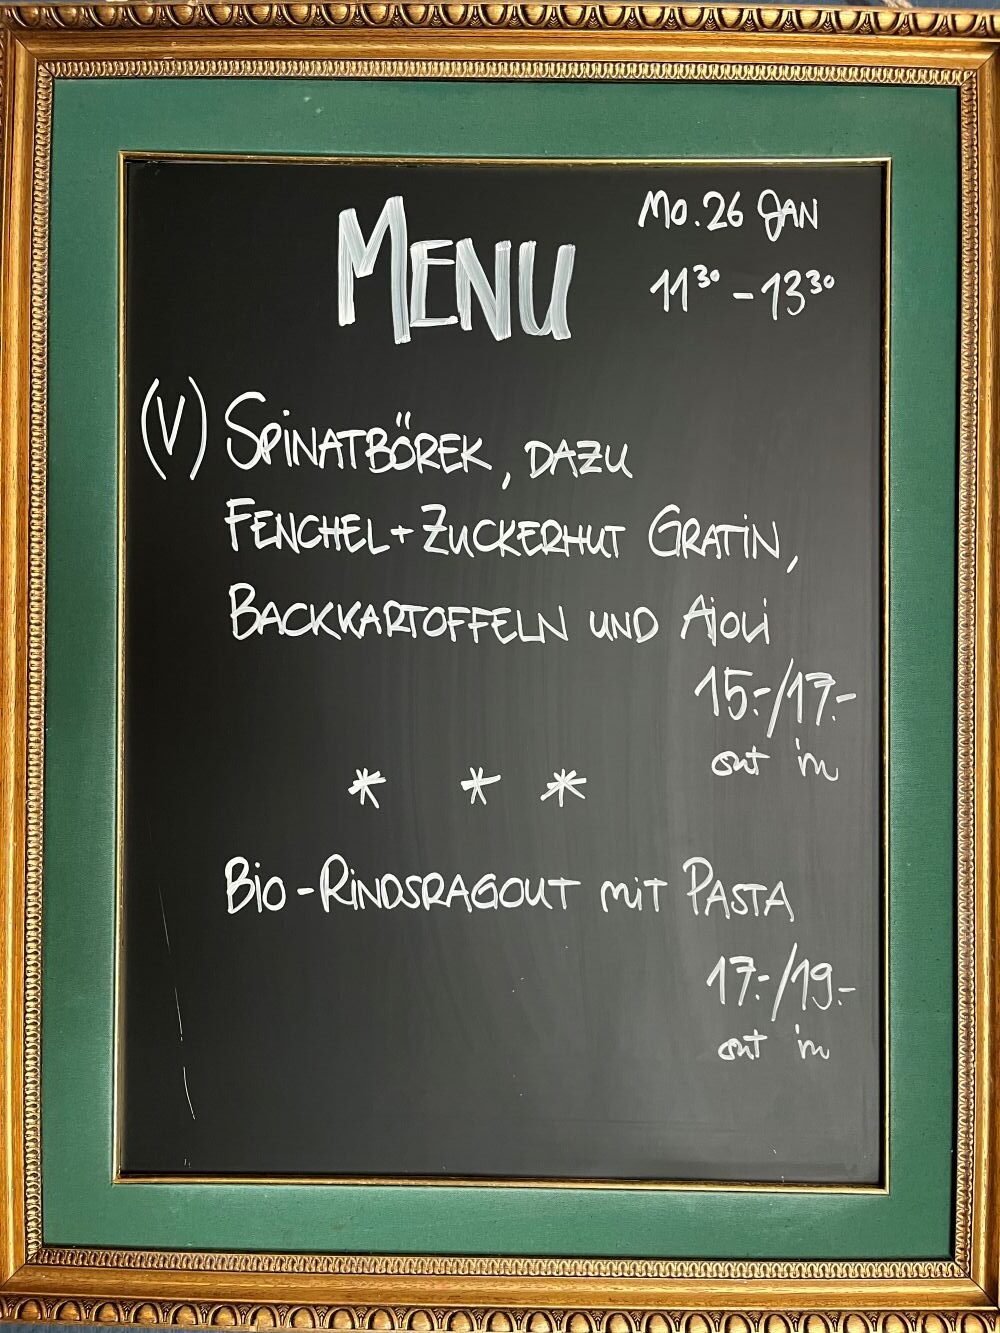 MENU
Mo. 26 JAN
11³⁰ - 13³⁰
(V) SPINATBÖREK, DAZU
FENCHEL + ZUCKERHUT GRATIN,
BACKKARTOFFELN UND AIOLI
15.-/17.-
out in
* * *
BIO-RINDSRAGOUT MIT PASTA
17.-/19.-
out in